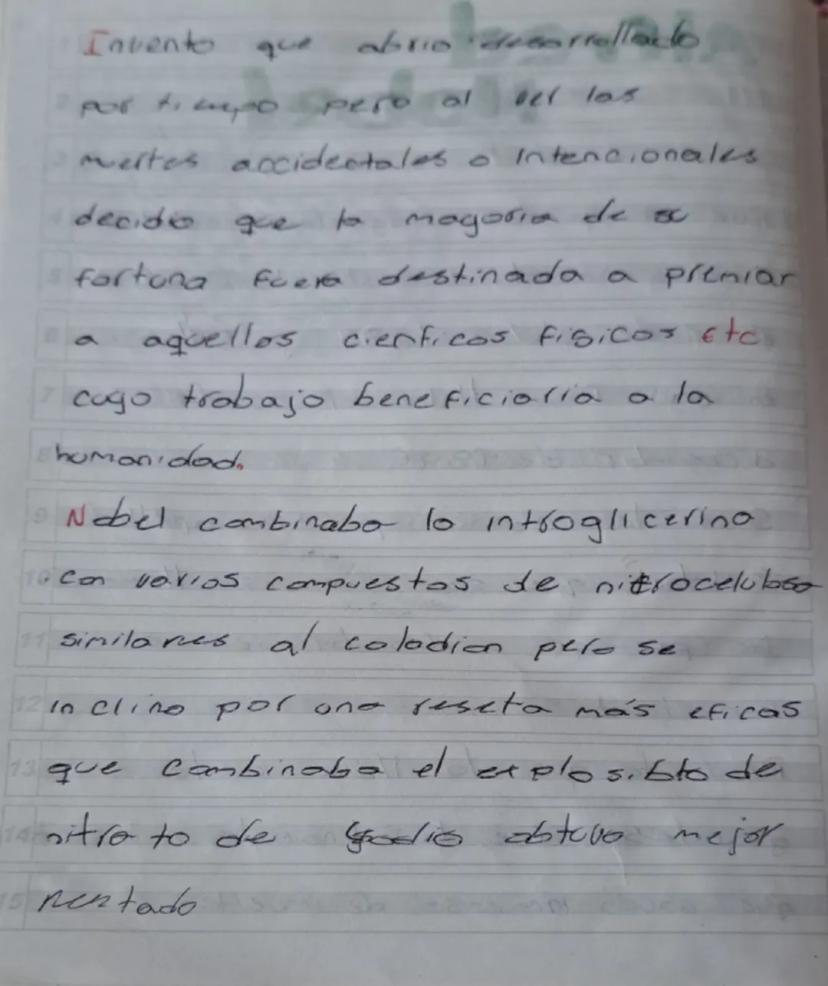 Invento que abrio desarrollado
por tiempo pero al ver las
mertes accidentales o intencionales
decidio que la mayoria de su
fortuna fuera destinada a premiar
a aquellos cienficos fisicos etc
cuyo trabajo beneficiaria a la
humanidad.
Nobel combinabo lo introglicerina
con varios compuestos de nitrocelulosa
similares al colodion pero se
inclino por una reseta más eficas
que combinaba el explosibto de
nitrato de obtuvo mejor